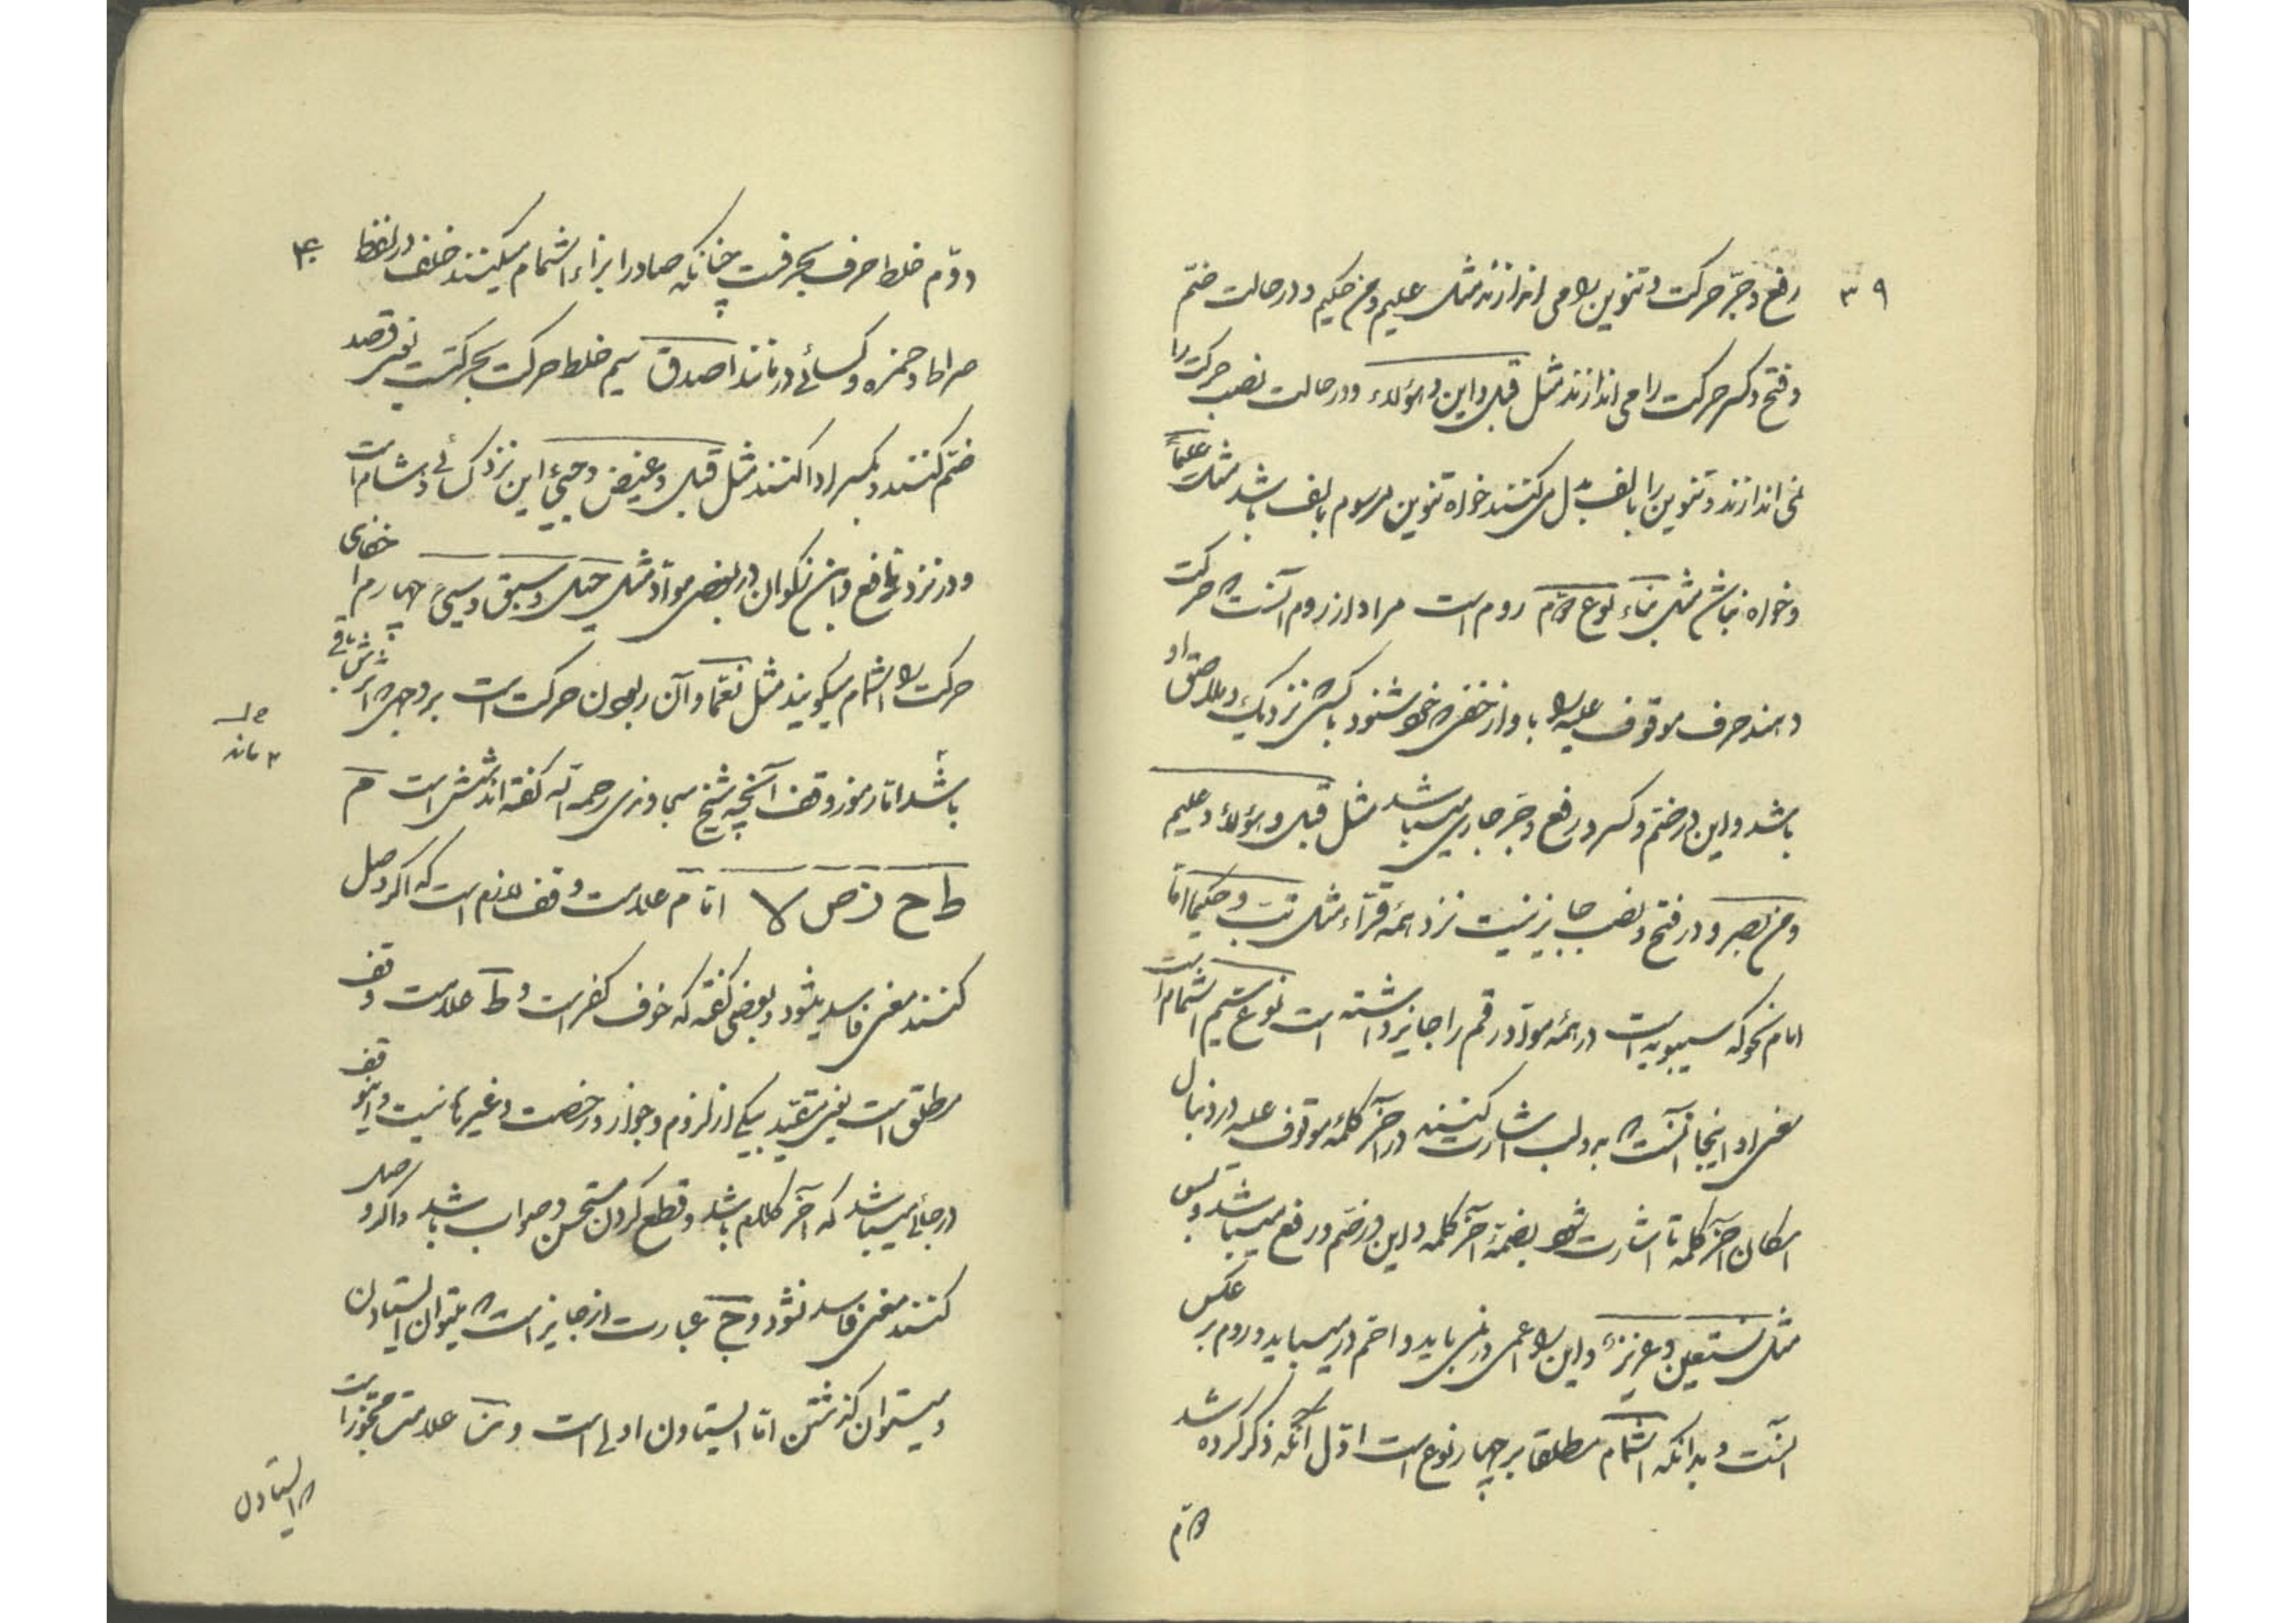 ۳۹
رفع و جرّ حرکت و تنوین را می اندازند مثل علیم و من حکیم و در حالت ضمّ
و فتح و کسر حرکت را می اندازند مثل قبل و این و هؤلاء و در حالت نصب حرکت را
نمی اندازند و تنوین را بالف بدل میکنند خواه تنوین مرسوم بالف باشد مثل علیماً
و خواه نباشد مثل بناء نوع دوّم روم است مراد از روم آنست که حرکت
دهند حرف موقوف علیه را باواز خفی که خود شنود یا کسی که نزدیک و ملاصق او
باشد و این در ضمّ و کسر و رفع و جرّ جاری میباشد مثل قبل و هؤلاء و علیم
و من بصیر و در فتح و نصب جایز نیست نزد همه قرّاء مثل تبّ و حکیما امّا
امام نحو که سیبویه است در همه موادّ روم را جایز داشته است نوع سیم اشمام است
معنی او اینجا آنست که به دو لب اشارت کنند در آخر کلمه موقوف علیه در دنبال
اسکان آخر کلمه تا اشارت شود بضمّه آخر کلمه و این در ضم و رفع میباشد و بس
مثل نستعین و عزیزٌ و این را اعمی در نمی یابد و اصم در می یابد و روم بر عکس
اینست و بدانکه اشمام مطلقا بر چهار نوع است اوّل آنکه ذکر کرده شد
دوّم
۴۰
دوّم خلط حرف بحرفست چنانکه صاد را بزاء اشمام میکنند خلف در لفظ
صراط و حمزه و کسائی در مانند اصدق سیم خلط حرکت بحرکتست یعنی قصد
ضمّ کنند و بکسر ادا کنند مثل قیل و غیض و جیئ این نزد کسائی و هشام است
و در نزد نافع و ابن ذکوان در بعضی موادّ مثل حیل و سیق و سیئ چهارم اخفای
حرکت را اشمام میگویند مثل نعمّا و آن ربودن حرکت است بر وجهی که اثرش باقی
باشد امّا رموز وقف آنچه شیخ سجاوندی رحمه اللّه گفته اند شش است م
ط ج ز ص لا امّا م علامت وقف لازم است که اگر وصل
کنند معنی فاسد میشود و بعضی گفته که خوف کفر است و ط علامت وقف
مطلق است یعنی مقیّد بیکی از لزوم و جواز و رخصت و غیرها نیست و این وقف
در جائی میباشد که آخر کلام باشد و قطع کردن مستحسن و صواب باشد و اگر وصل
کنند معنی فاسد نشود و ج عبارت از جایز است که میتوان ایستادن
و میتوان گذشتن امّا ایستادن اولی است و ز علامت مجوّز است
که ایستادن